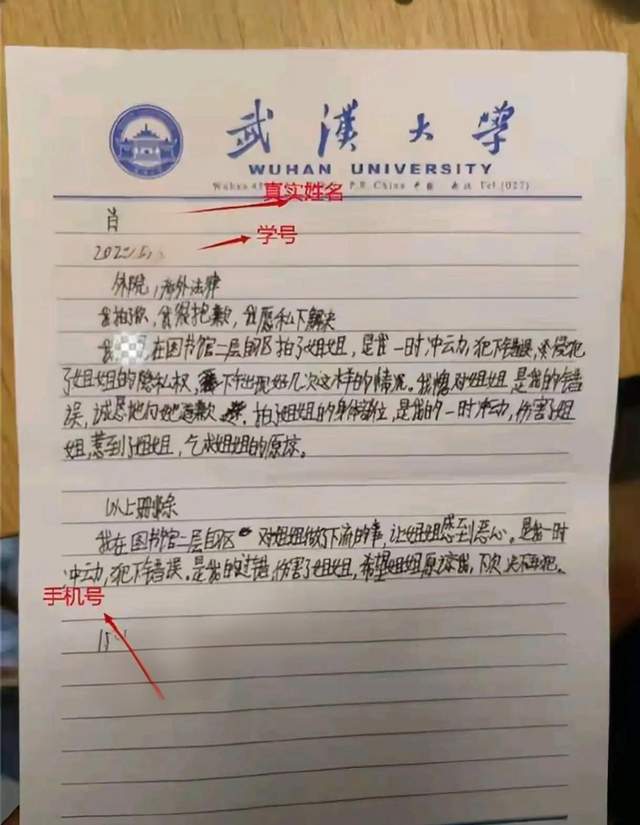 武漢大学
WUHAN UNIVERSITY
P.R. China 中国 武汉 Tel.(027)
真实姓名
肖
学号
外院,涉外法律
我拍了你,我很抱歉,我愿私下解决
在图书馆二层自区拍了姐姐,是我一时冲动,犯下错误,侵犯
了姐姐的隐私权,出现好几次这样的情况。我愧对姐姐,是我的错
误,诚恳地向她道歉,拍了姐姐的身体部位,是我的一时冲动,伤害了姐
姐,惹到了姐姐,乞求姐姐的原谅。
以上删除
我在图书馆二层自区对姐姐做了下流的事,让姐姐感到恶心。是我一时
冲动,犯下错误。是我的过错,伤害了姐姐,希望姐姐原谅我,下次决不再犯。
手机号